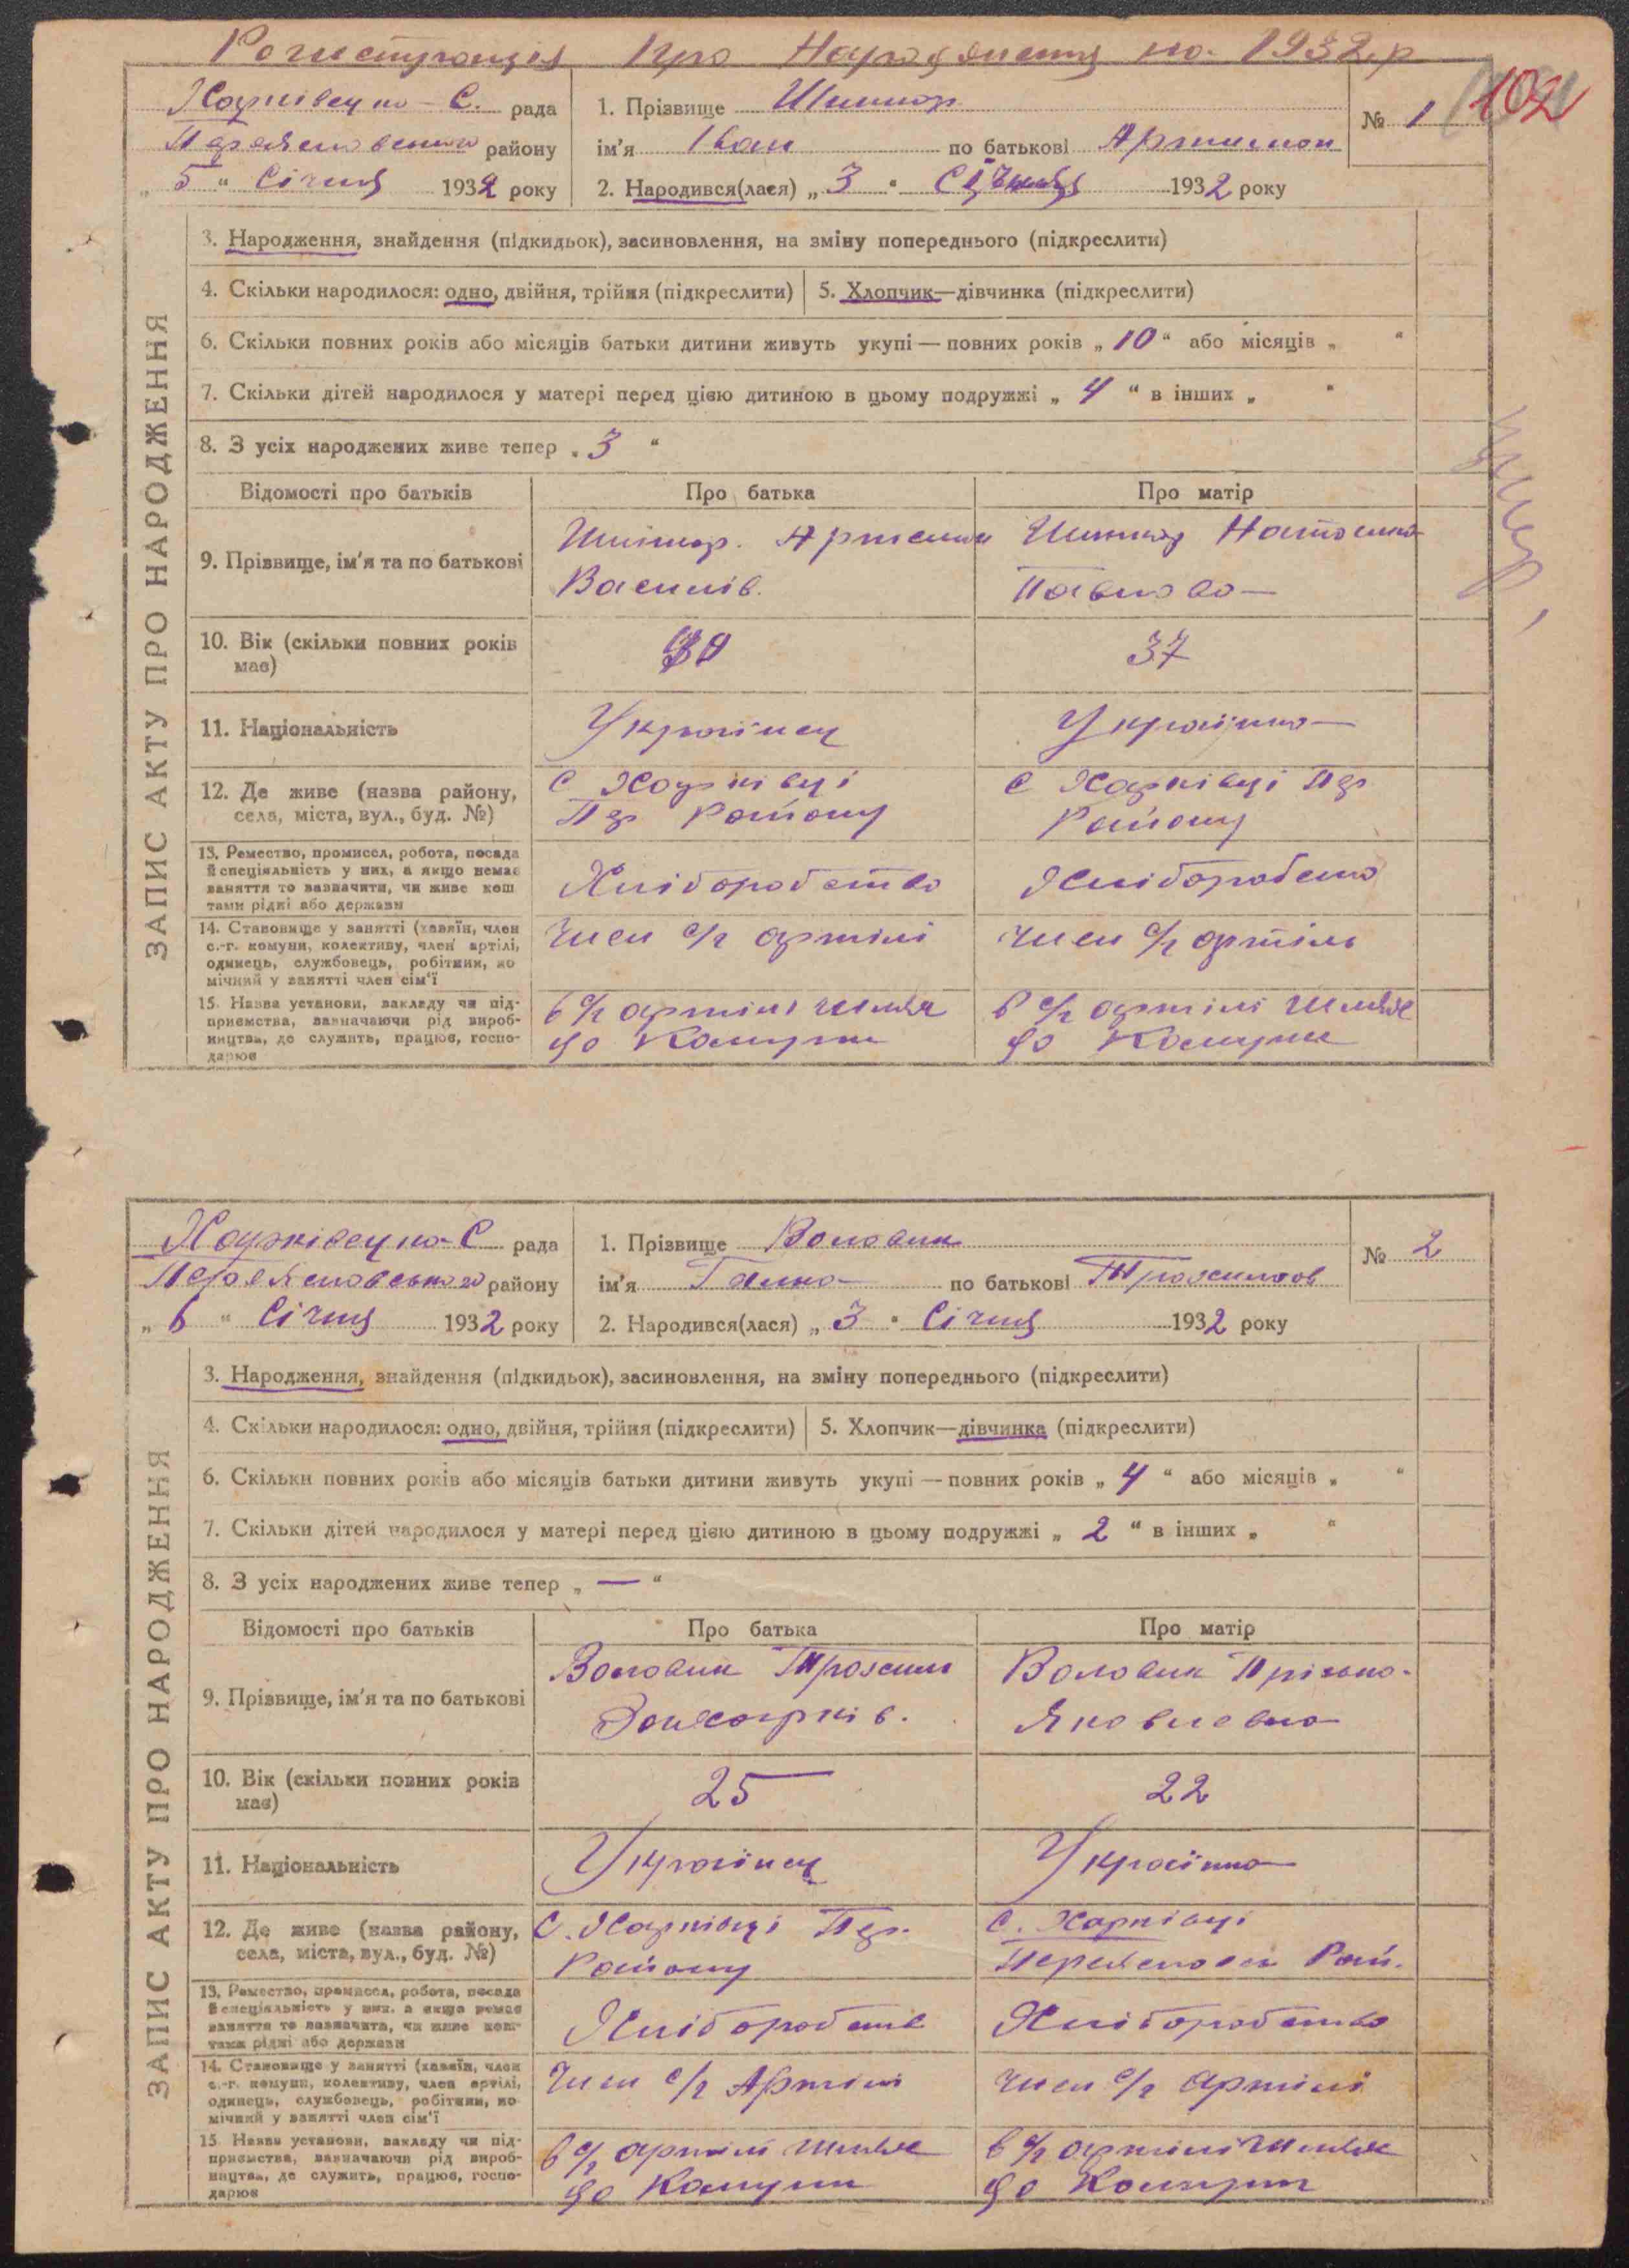 Регистрація Про Народження на 1932 р
Харківецька С. рада
Переяславського району
„ 5 “ Січня 1932 року
1. Прізвище Шинкар
ім'я Іван по батькові Артимон
2. Народився(лася) „ 3 “ Січня 1932 року
№ 1
102
ЗАПИС АКТУ ПРО НАРОДЖЕННЯ
3. Народження, знайдення (підкидьок), засиновлення, на зміну попереднього (підкреслити)
4. Скільки народилося: одно, двійня, трійня (підкреслити) 5. Хлопчик—дівчинка (підкреслити)
6. Скільки повних років або місяців батьки дитини живуть укупі — повних років „ 10 “ або місяців „ “
7. Скільки дітей народилося у матері перед цією дитиною в цьому подружжі „ 4 “ в інших „ “
8. З усіх народжених живе тепер „ 3 “
Відомості про батьків Про батька Про матір
9. Прізвище, ім'я та по батькові
Шинкар. Артемон
Василів.
Шинкар Наталка
Павлова
10. Вік (скільки повних років
має)
37
11. Національність Українец Українка
12. Де живе (назва району,
села, міста, вул., буд. №)
С Харківці
Пер Району
С Харківці Пер
Району
13. Ремество, промисел, робота, посада
й спеціяльність у них, а якщо немає
заняття то зазначити, чи живе кош
тами рідні або держави
Хліборобство
Хлібороб
14. Становище у занятті (хазяїн, член
с.-г. комуни, колективу, член артілі,
одинець, службовець, робітник, по
мічний у занятті член сім'ї
Член с/г артілі
Член с/г артіль
15. Назва установи, закладу чи під-
приємства, зазначаючи рід вироб-
ництва, де служить, працює, госпо-
дарює
в с/г артілі шлях
до Комуни
в с/г артілі шлях
до Комуни
Харківецька С рада
Переяславського району
„ 6 “ Січня 1932 року
1. Прізвище Воловик
ім'я Галина по батькові Трохимов
2. Народився(лася) „ 3 “ Січня 1932 року
№ 2
ЗАПИС АКТУ ПРО НАРОДЖЕННЯ
3. Народження, знайдення (підкидьок), засиновлення, на зміну попереднього (підкреслити)
4. Скільки народилося: одно, двійня, трійня (підкреслити) 5. Хлопчик—дівчинка (підкреслити)
6. Скільки повних років або місяців батьки дитини живуть укупі — повних років „ 4 “ або місяців „ “
7. Скільки дітей народилося у матері перед цією дитиною в цьому подружжі „ 2 “ в інших „ “
8. З усіх народжених живе тепер „ — “
Відомості про батьків Про батька Про матір
9. Прізвище, ім'я та по батькові
Воловик Трохим
Захарків.
Воловик
Яковлевна
10. Вік (скільки повних років
має)
25 22
11. Національність Українец Українка
12. Де живе (назва району,
села, міста, вул., буд. №)
С. Харківці Пер.
Району
С. Харківці
Переяславськ Рай.
13. Ремество, промисел, робота, посада
й спеціяльність у них, а якщо немає
заняття то зазначити, чи живе кош-
тами рідні або держави
Хліборобств
Хліборобство
14. Становище у занятті (хазяїн, член
с.-г. комуни, колективу, член артілі,
одинець, службовець, робітник, по
мічний у занятті член сім'ї
Член с/г Артілі
Член с/г артілі
15. Назва установи, закладу чи під-
приємства, зазначаючи рід вироб-
ництва, де служить, працює, госпо-
дарює
в с/г артілі шлях
до Комуни
в с/г артілі шлях
до Комуни